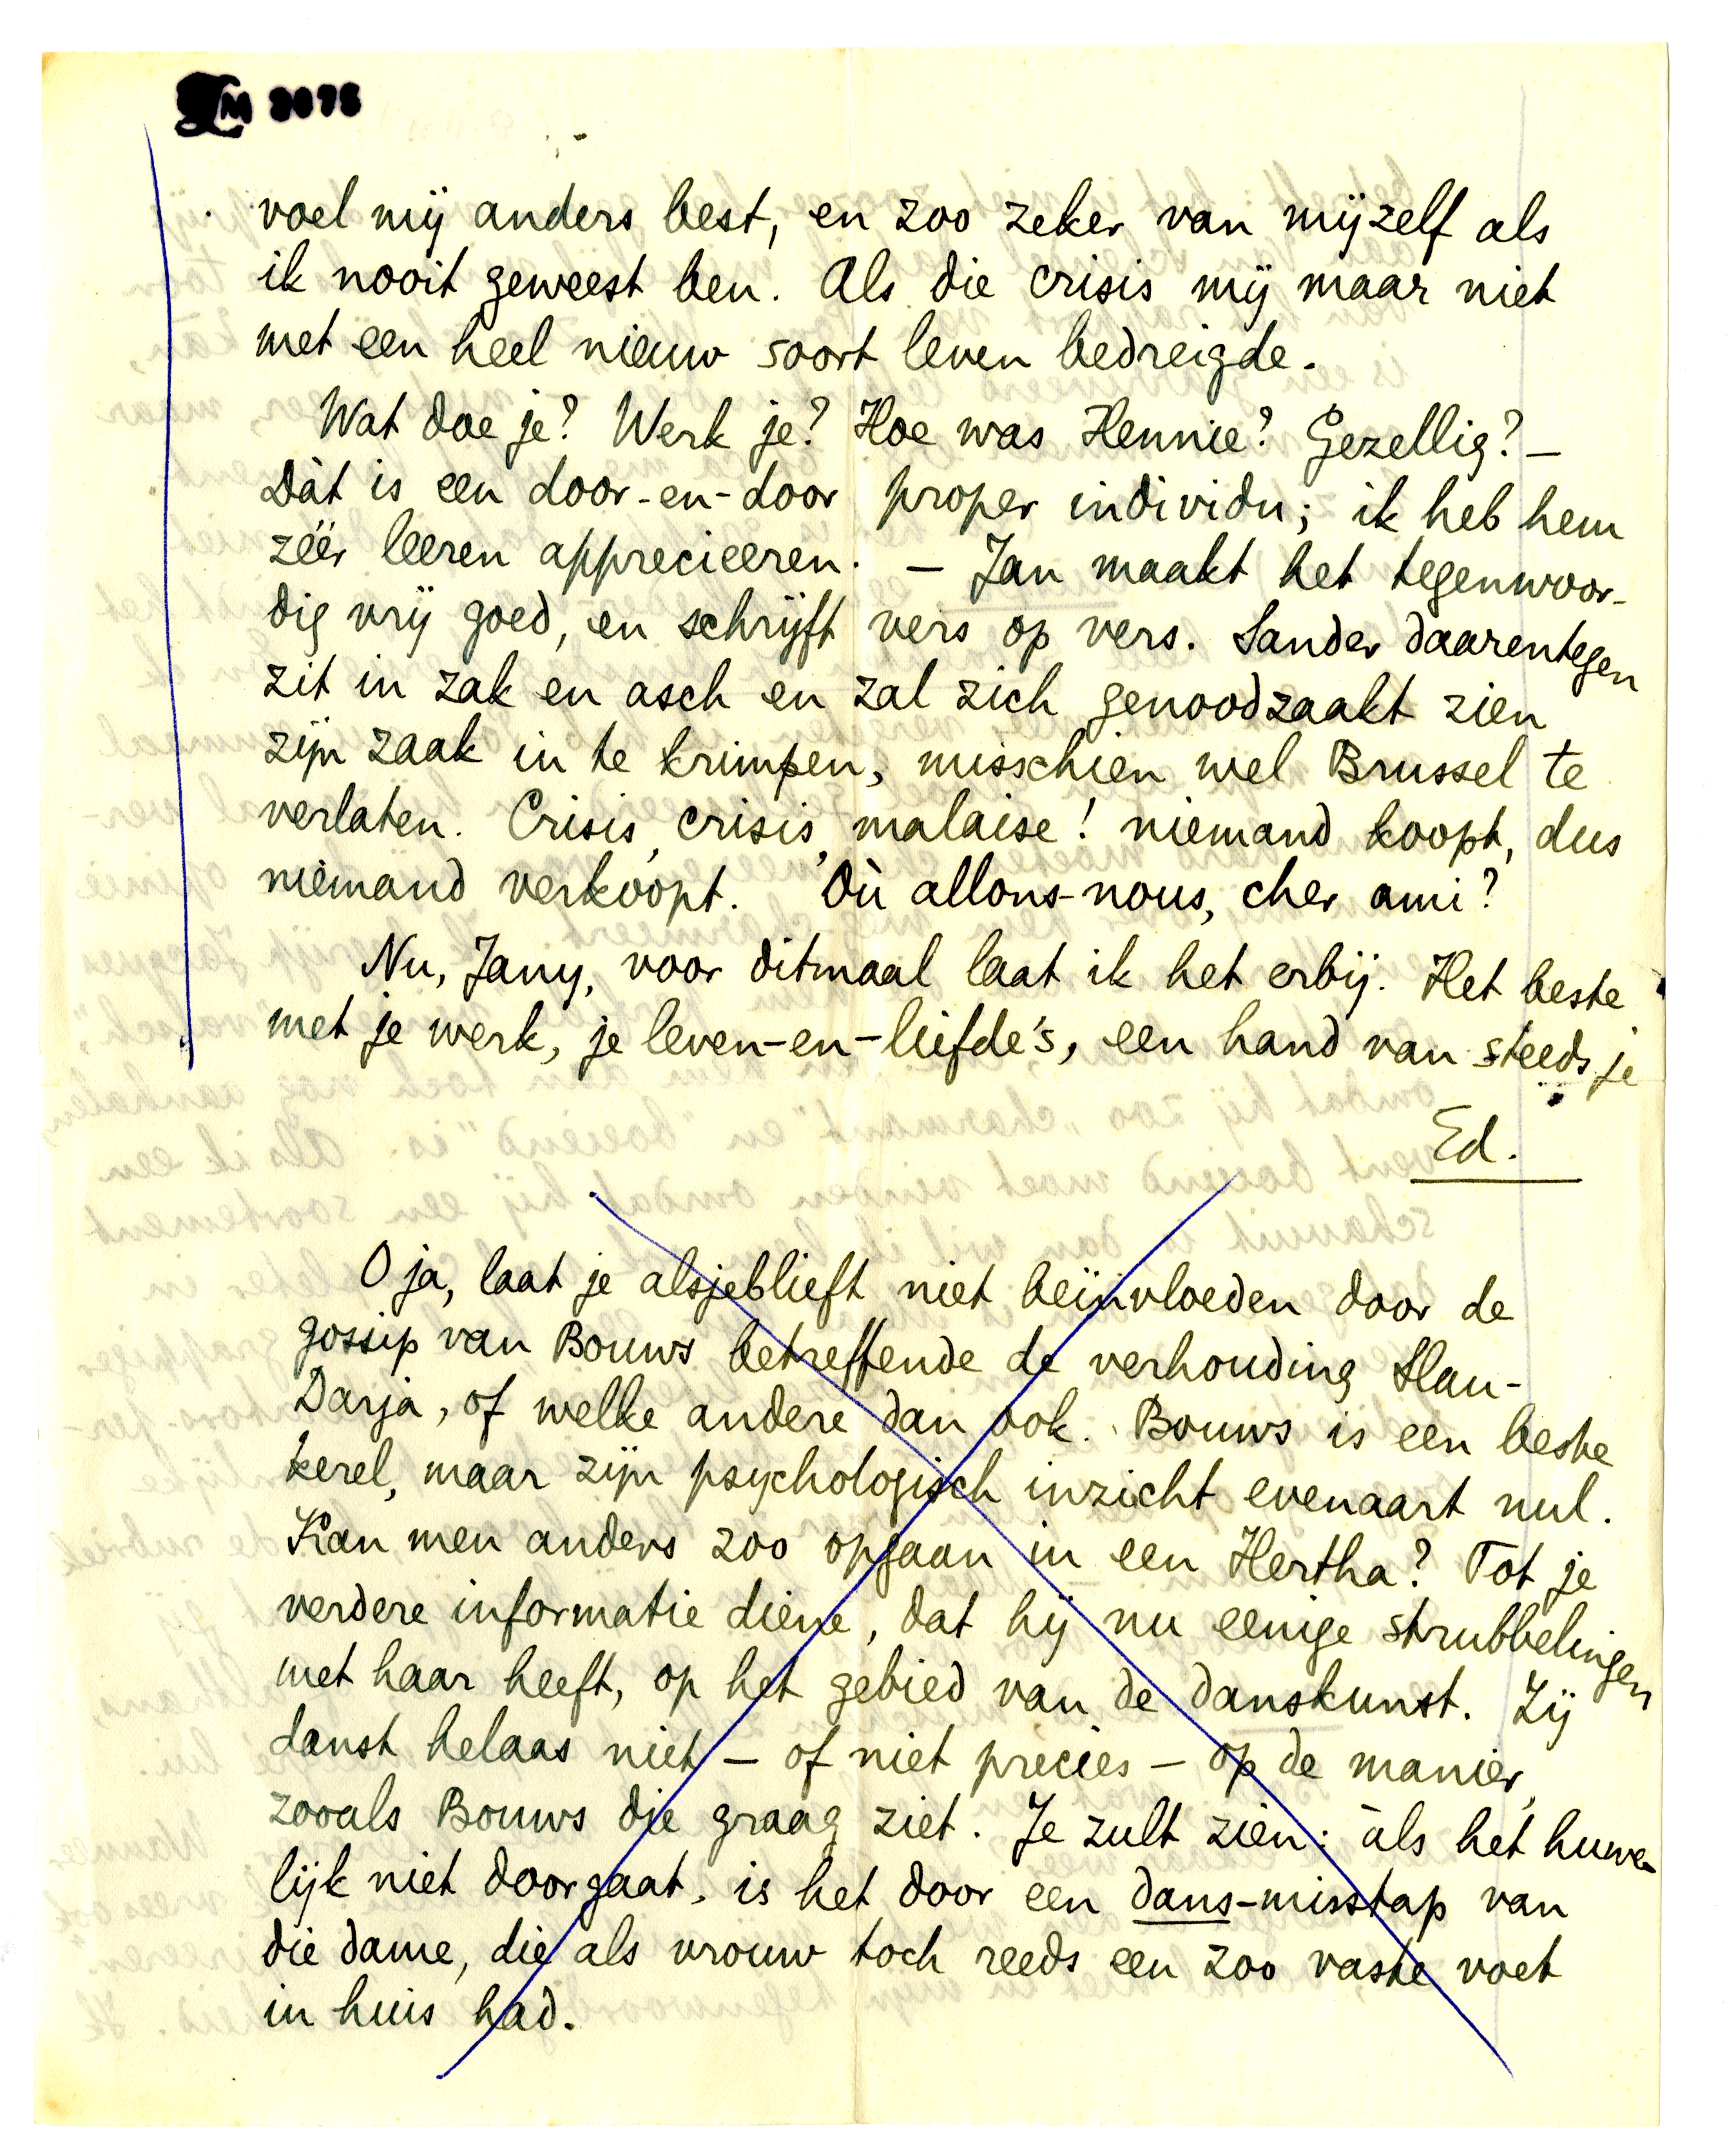 LM 3076
voel mij anders best, en zoo zeker van mijzelf als
ik nooit geweest ben. Als die crisis mij maar niet
met een heel nieuw soort leven bedreigde.
Wat doe je? Werk je? Hoe was Hennie? Gezellig? –
Dàt is een door-en-door proper individu; ik heb hem
zéér leeren apprecieeren. – Jan maakt het tegenwoor-
dig vrij goed, en schrijft vers op vers. Sander daarentegen
zit in zak en asch en zal zich genoodzaakt zien
zijn zaak in te krimpen, misschien wel Brussel te
verlaten. Crisis, crisis, malaise! niemand koopt, dus
niemand verkoopt. Où allons-nous, cher ami?
Nu, Jany, voor ditmaal laat ik het erbij. Het beste
met je werk, je leven-en-liefde's, een hand van steeds je
Ed.
O ja, laat je alsjeblieft niet beïnvloeden door de
gossip van Bouws betreffende de verhouding Slau-
Darja, of welke andere dan ook. Bouws is een beste
kerel, maar zijn psychologisch inzicht evenaart nul.
Kan men anders zoo opgaan in een Hertha? Tot je
verdere informatie diene, dat hij nu eenige strubbelingen
met haar heeft, op het gebied van de danskunst. Zij
danst helaas niet – of niet precies – op de manier,
zooals Bouws die graag ziet. Je zult zien: àls het huwe-
lijk niet doorgaat, is het door een dans-misstap van
die dame, die als vrouw toch reeds een zoo vaste voet
in huis had.